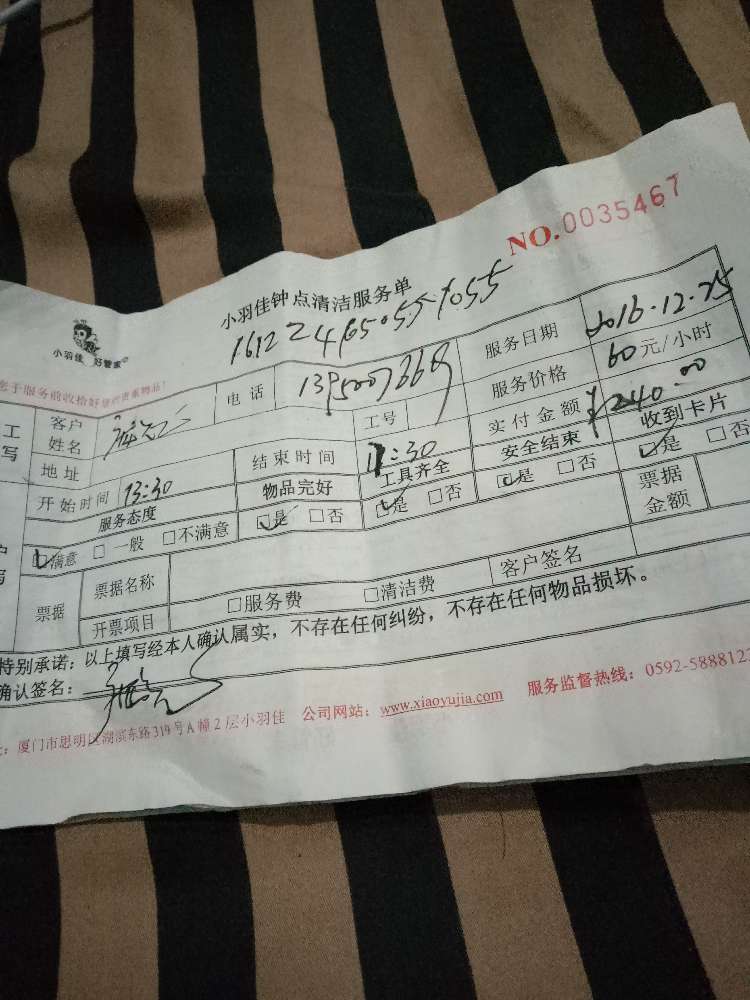 NO.0035467
小羽佳钟点清洁服务单
小羽佳 好管家
于服务前收拾好贵重物品！
客户姓名 电话 服务日期 2016.12.25
地址 工号 服务价格 60元/小时
开始时间 13:30 结束时间 17:30 实付金额 ¥240.00
服务态度 物品完好 工具齐全 安全结束 收到卡片
□满意 □一般 □不满意 □是 □否 □是 □否 □是 □否 □是 □否
票据 票据名称 票据金额
开票项目 □服务费 □清洁费 客户签名
特别承诺：以上填写经本人确认属实，不存在任何纠纷，不存在任何物品损坏。
确认签名：
厦门市思明区湖滨东路319号A幢2层小羽佳 公司网站：www.xiaoyujia.com 服务监督热线：0592-5888122